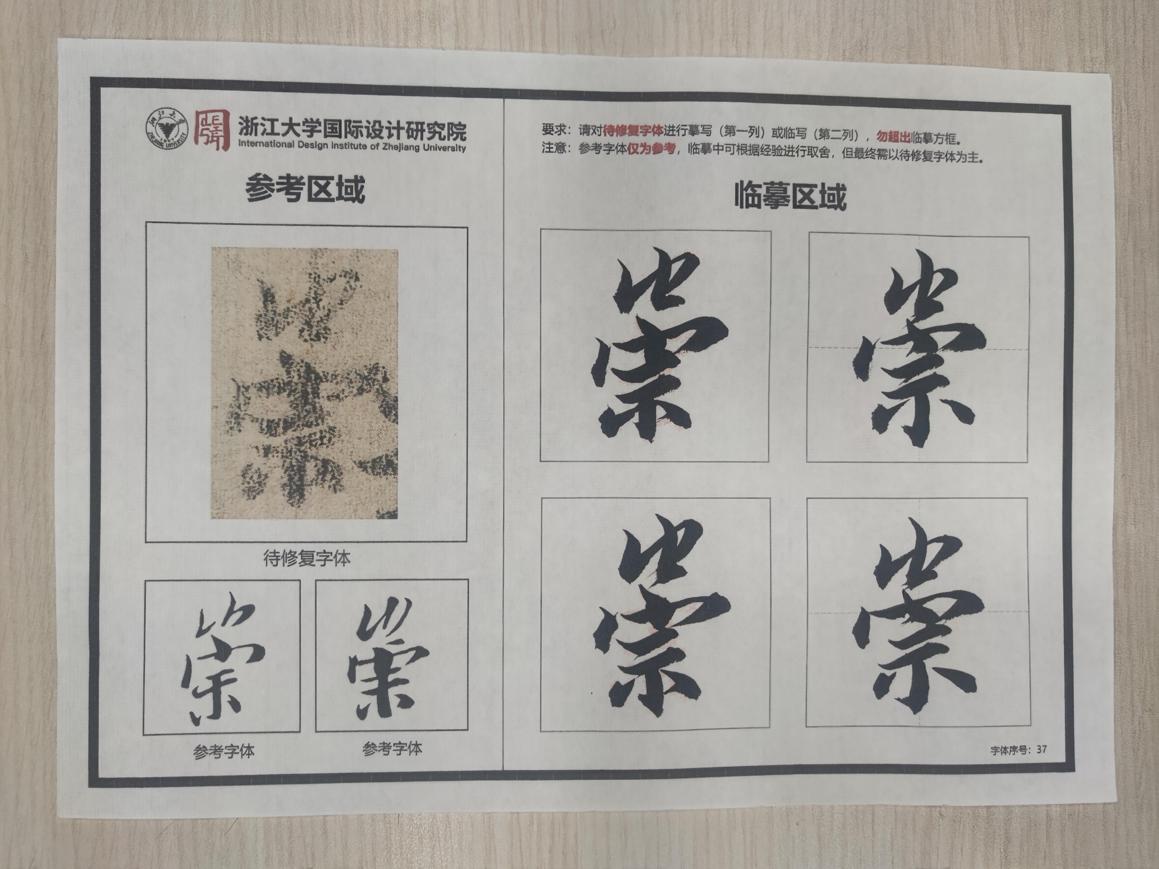 浙江大学国际设计研究院
International Design Institute of Zhejiang University
参考区域
待修复字体
崇
崇
参考字体
参考字体
要求：请对待修复字体进行摹写（第一列）或临写（第二列），勿超出临摹方框。
注意：参考字体仅为参考，临摹中可根据经验进行取舍，但最终需以待修复字体为主。
临摹区域
崇
崇
崇
崇
字体序号：37